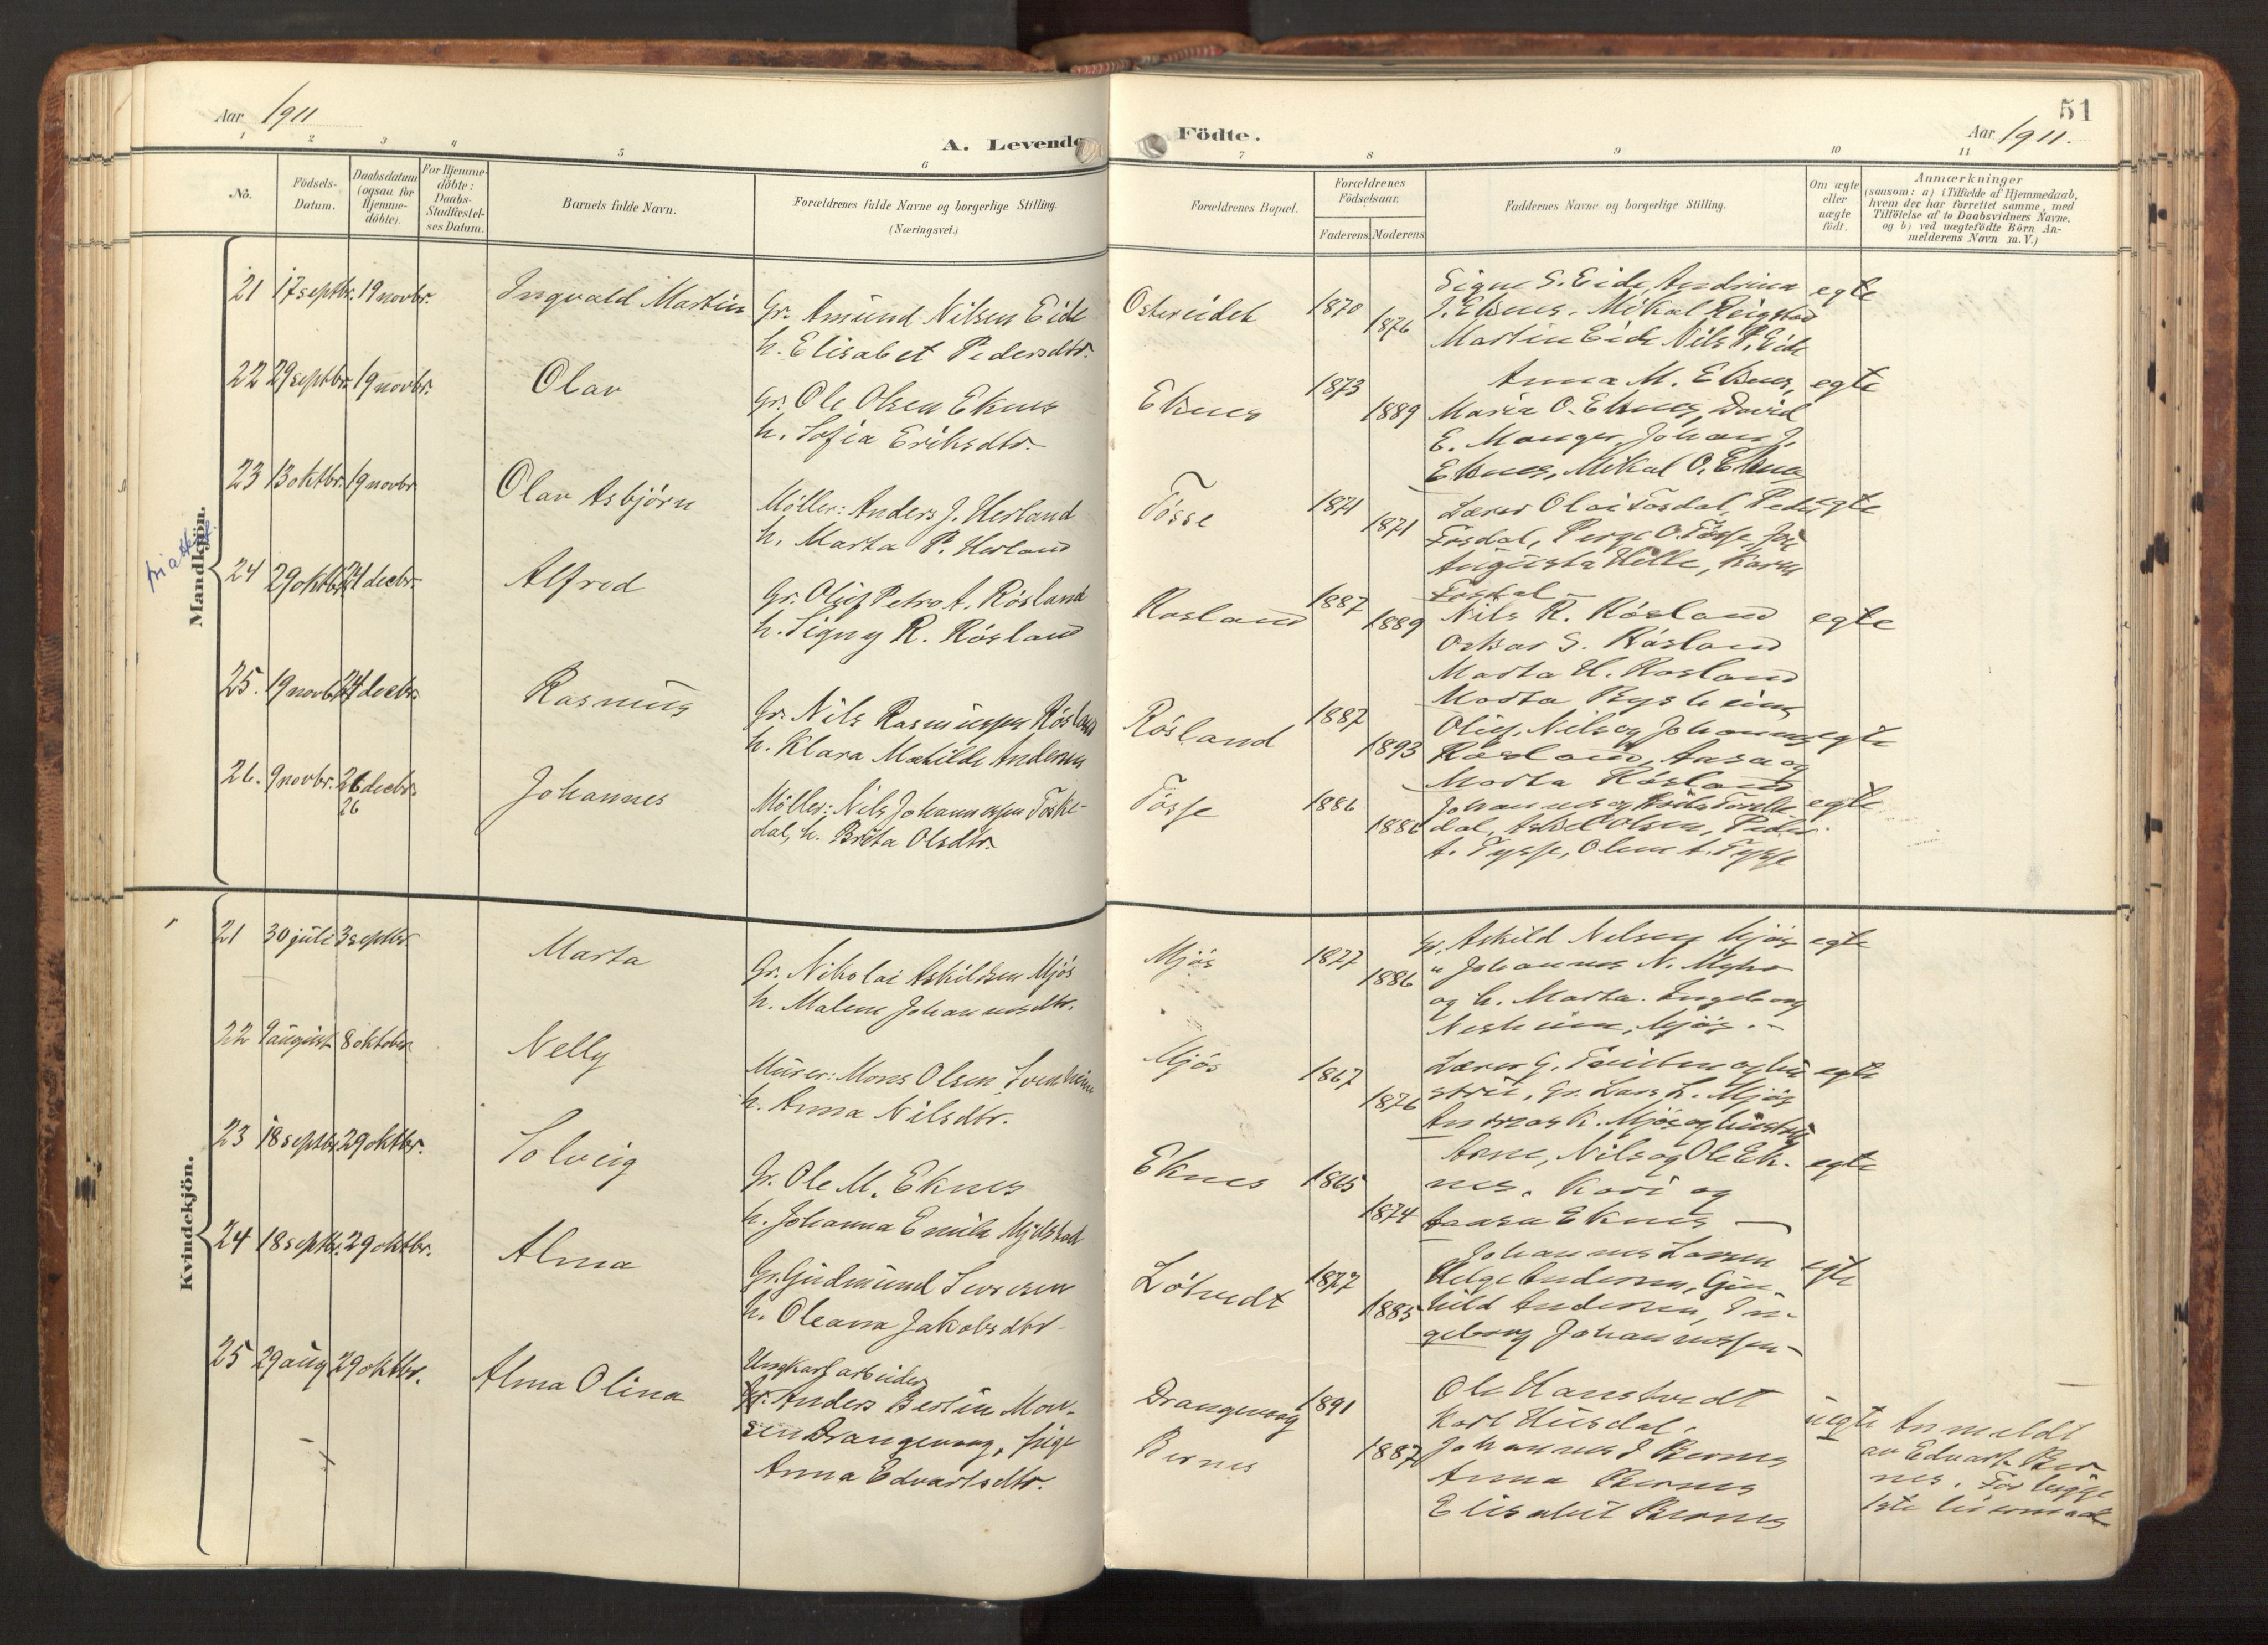 Aar 1911
A. Levende Födte.
51
Aar 1911.
1 2 3 4 5 6 7 8 9 10 11
No.
Födsels-
Datum.
Daabsdatum
(ogsaa for
Hjemme-
döbte).
For Hjemme-
döbte:
Daabs-
Stadfæstel-
ses Datum.
Barnets fulde Navn.
Forældrenes fulde Navne og borgerlige Stilling.
(Næringsvei.)
Forældrenes Bopæl.
Forældrenes
Födselsaar.
Faderens. Moderens.
Faddernes Navne og borgerlige Stilling.
Om ægte
eller
uægte
födt.
Anmærkninger
(saasom: a) i Tilfælde af Hjemmedaab,
hvem der har forrettet samme, med
Tilföielse af to Daabsvidners Navne,
og b) ved uægtefödte Börn An-
melderens Navn m. V.)
Mandkjön.
21 17 septbr. 19 novbr. Ingvald Martin
Gr. Amund Nilsen Eide
h. Elisabet Pedersdtr.
Ostereidet 1870 1876
Signe S. Eide, Andrina
J. Eknes, Mikal Reigstad
Martin Eide Nils P. Eide
egte
22 29 septbr. 19 novbr. Olav
Gr. Ole Olsen Eknes
h. Sofia Eriksdtr.
Eknes 1873 1889
Anna M. Eknes,
Maria O. Eknes, David
E. Manger, Johan J.
Eknes, Mikal O. Eknes
egte
23 13 oktbr. 19 novbr. Olav Asbjörn
Möller: Anders J. Herland
h. Marta P. Herland
Tösse 1871 1871
Lærer Olai Fosdal, Peder
Fosdal, O. Tösse,
Augusta Hille, Karen
Fosdal
egte
24 29 oktbr. 24 decbr. Alfred
Gr. Oluf Petro A. Rösland
h. Signy R. Rösland
Rosland 1887 1889
Nils R. Rösland
Oskar S. Rösland
Marta H. Rosland
Marta Bysheim
egte
25. 19 novbr. 24 decbr. Rasmus
Gr. Nils Rasmussen Rösland
h. Klara Matilde Andersen
Rösland 1887 1893
Oluf, Nils og Johannes
Rosland, Anna og
Marta Rösland
egte
26. 9 novbr. 26 decbr. Johannes
26
Möller: Nils Johannessen Toske-
dal, h. Brita Olsdtr.
Tösse 1886 1886
Johannes og Brita Toske-
dal, Askel Olsen, Peder
A. Tysse, Olene A. Tysse
egte
Kvindekjön.
21 30 juli 3 septbr. Marta
Gr. Nikolai Askildsen Mjös
h. Malene Johannesdtr.
Mjös 1877 1886
Gr. Askild Nilsen Mjös
" Johannes N. Myhr
og h. Marta. Ingeborg
Nesheim, Mjös.
egte
22 9 august 8 oktober Nelly
Murer: Mons Olsen Svenheim
h. Anna Nilsdtr.
Mjös 1867 1876
Lærer G. og hu-
stru, Gr. Lars L. Mjös
Andreas K. Mjös og hustru
egte
23 18 septbr. 29 oktbr. Solveig
Gr. Ole M. Eknes
h. Johanna Emilie Mjelstad
Eknes 1865 1874
Arne, Nils og Ole Ek-
nes, Kari og
Eknes
egte
24 18 septbr. 29 oktbr. Alma
Gr. Gudmund Seversen
h. Oleana Jakobsdtr.
Lötvedt 1877 1885
Johannes Larsen
Helge Andersen, Gun-
hild Andersen, In-
geborg Johannessen
egte
25 29 aug 29 oktbr. Alma Olina
Ungkarl arbeider
Anders Bertin Mon-
sen Drangevaag, pige
Anna Edvartsdtr.
Drangevaag 1891
Bernes 1887
Ole Hanstvedt
Karl Husdal,
Johannes E Bernes
Anna Bernes
Elisabet Bernes
uegte
Anmeldt
av Edvart Ber-
nes. For begge
1ste leiermaal